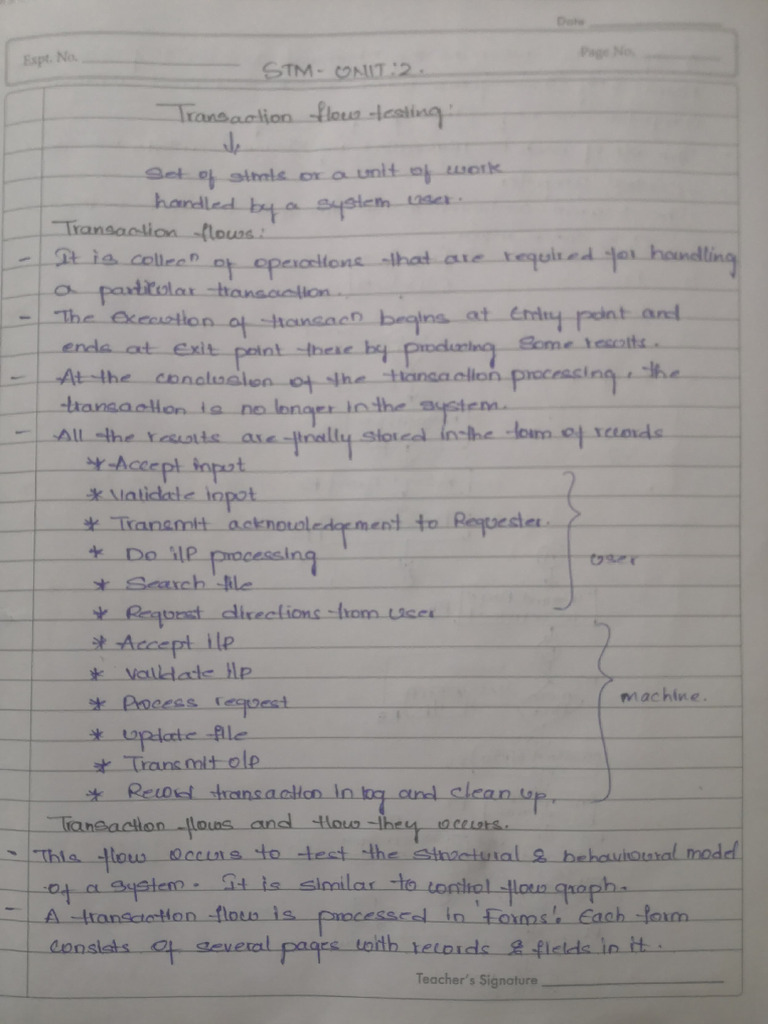 Date
Expt. No.
Page No.
STM - UNIT:2.
Transaction flow testing:
↓
Set of stmts or a unit of work
handled by a system user.
Transaction flows:
- It is collecn of operations that are required for handling
a particular transaction.
- The Execution of transacn begins at Entry point and
ends at Exit point there by producing some results.
- At the conclusion of the transaction processing, the
transaction is no longer in the system.
- All the results are finally stored in the form of records
* Accept input
* Validate input
* Transmit acknowledgement to Requester.
* Do i/p processing
user
* Search file
* Request directions from user
* Accept i/p
* Validate i/p
* Process request
machine.
* Update file
* Transmit o/p
* Record transaction in log and clean up.
Transaction flows and how they occurs.
- This flow occurs to test the structural & behavioural model
of a system. It is similar to control flow graph.
- A transaction flow is processed in 'Forms'. Each form
consists of several pages with records & fields in it.
Teacher's Signature